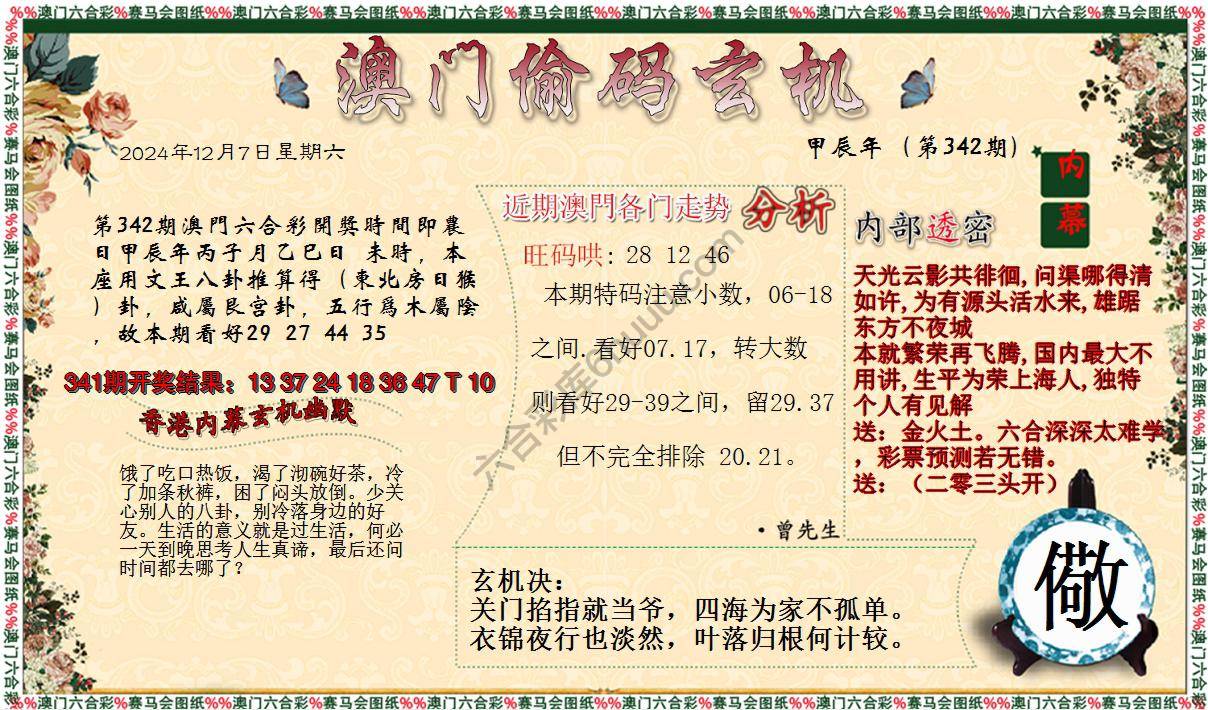 %%澳门六合彩%赛马会图纸%%澳门六合彩%赛马会图纸%%澳门六合彩%赛马会图纸%%澳门六合彩%赛马会图纸%%澳门六合彩%赛马会图纸%%澳门六合彩%赛马会图纸%%
澳门偷码玄机
2024年12月7日星期六
甲辰年（第342期）
内幕
第342期澳門六合彩開獎時間即農
日甲辰年丙子月乙巳日 未時，本
座用文王八卦推算得（東北房日猴
）卦，咸屬艮宫卦，五行爲木屬陰
，故本期看好29 27 44 35
341期开奖结果：13 37 24 18 36 47 T 10
香港内幕玄机幽默
饿了吃口热饭，渴了沏碗好茶，冷
了加条秋裤，困了闷头放倒。少关
心别人的八卦，别冷落身边的好
友。生活的意义就是过生活，何必
一天到晚思考人生真谛，最后还问
时间都去哪了？
近期澳門各门走势 分析
旺码哄: 28 12 46
本期特码注意小数，06-18
之间.看好07.17，转大数
则看好29-39之间，留29.37
但不完全排除 20.21。
·曾先生
内部透密
天光云影共徘徊,问渠哪得清
如许,为有源头活水来,雄踞
东方不夜城
本就繁荣再飞腾,国内最大不
用讲,生平为荣上海人,独特
个人有见解
送：金火土。六合深深太难学
，彩票预测若无错。
送：（二零三头开）
玄机决：
关门掐指就当爷，四海为家不孤单。
衣锦夜行也淡然，叶落归根何计较。
儆
%%澳门六合彩%赛马会图纸%%澳门六合彩%赛马会图纸%%澳门六合彩%赛马会图纸%%澳门六合彩%赛马会图纸%%澳门六合彩%赛马会图纸%%澳门六合彩%赛马会图纸%%